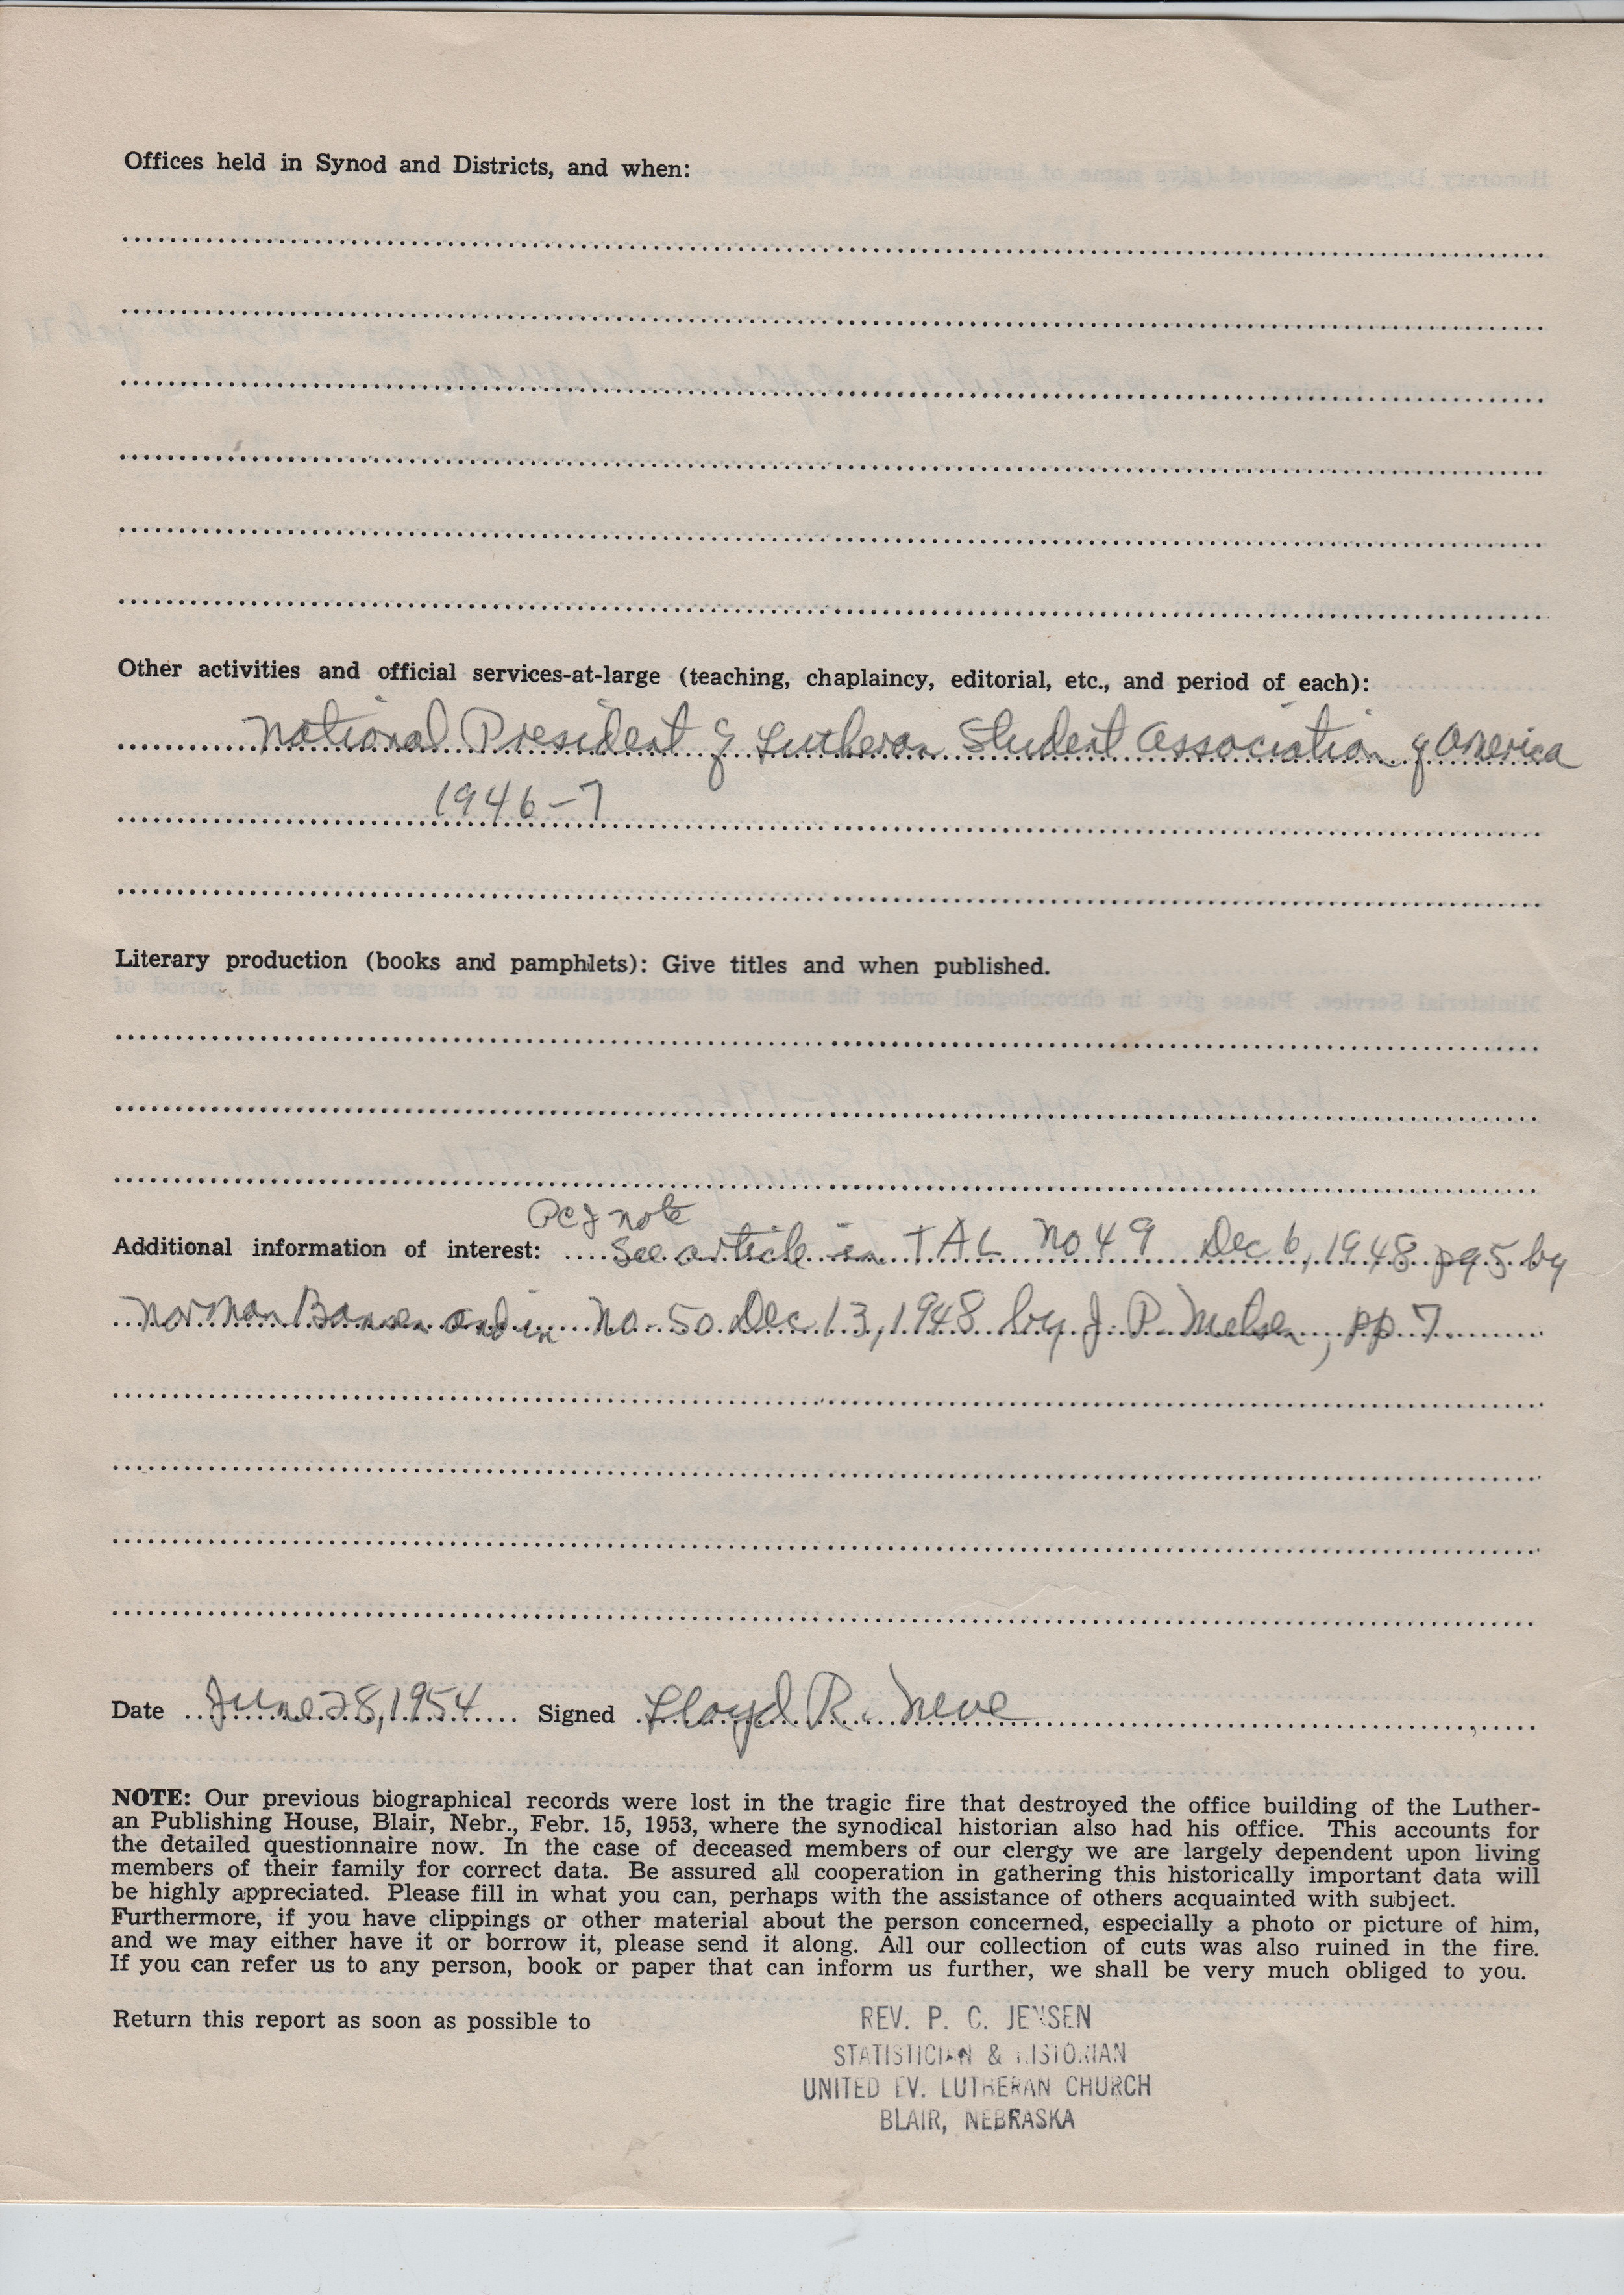 Offices held in Synod and Districts, and when:
Other activities and official services-at-large (teaching, chaplaincy, editorial, etc., and period of each):
National President of Lutheran Student Association of America
1946-7
Literary production (books and pamphlets): Give titles and when published.
PCJ note
Additional information of interest: See article in TAL No 49 Dec 6, 1948 pg 5 by
Norman Bansen and in No. 50 Dec 13, 1948 by J. P. Nielsen, pp 7
Date June 28, 1954 Signed Lloyd R. Neve
NOTE: Our previous biographical records were lost in the tragic fire that destroyed the office building of the Luther-
an Publishing House, Blair, Nebr., Febr. 15, 1953, where the synodical historian also had his office. This accounts for
the detailed questionnaire now. In the case of deceased members of our clergy we are largely dependent upon living
members of their family for correct data. Be assured all cooperation in gathering this historically important data will
be highly appreciated. Please fill in what you can, perhaps with the assistance of others acquainted with subject.
Furthermore, if you have clippings or other material about the person concerned, especially a photo or picture of him,
and we may either have it or borrow it, please send it along. All our collection of cuts was also ruined in the fire.
If you can refer us to any person, book or paper that can inform us further, we shall be very much obliged to you.
Return this report as soon as possible to
REV. P. C. JENSEN
STATISTICIAN & HISTORIAN
UNITED EV. LUTHERAN CHURCH
BLAIR, NEBRASKA